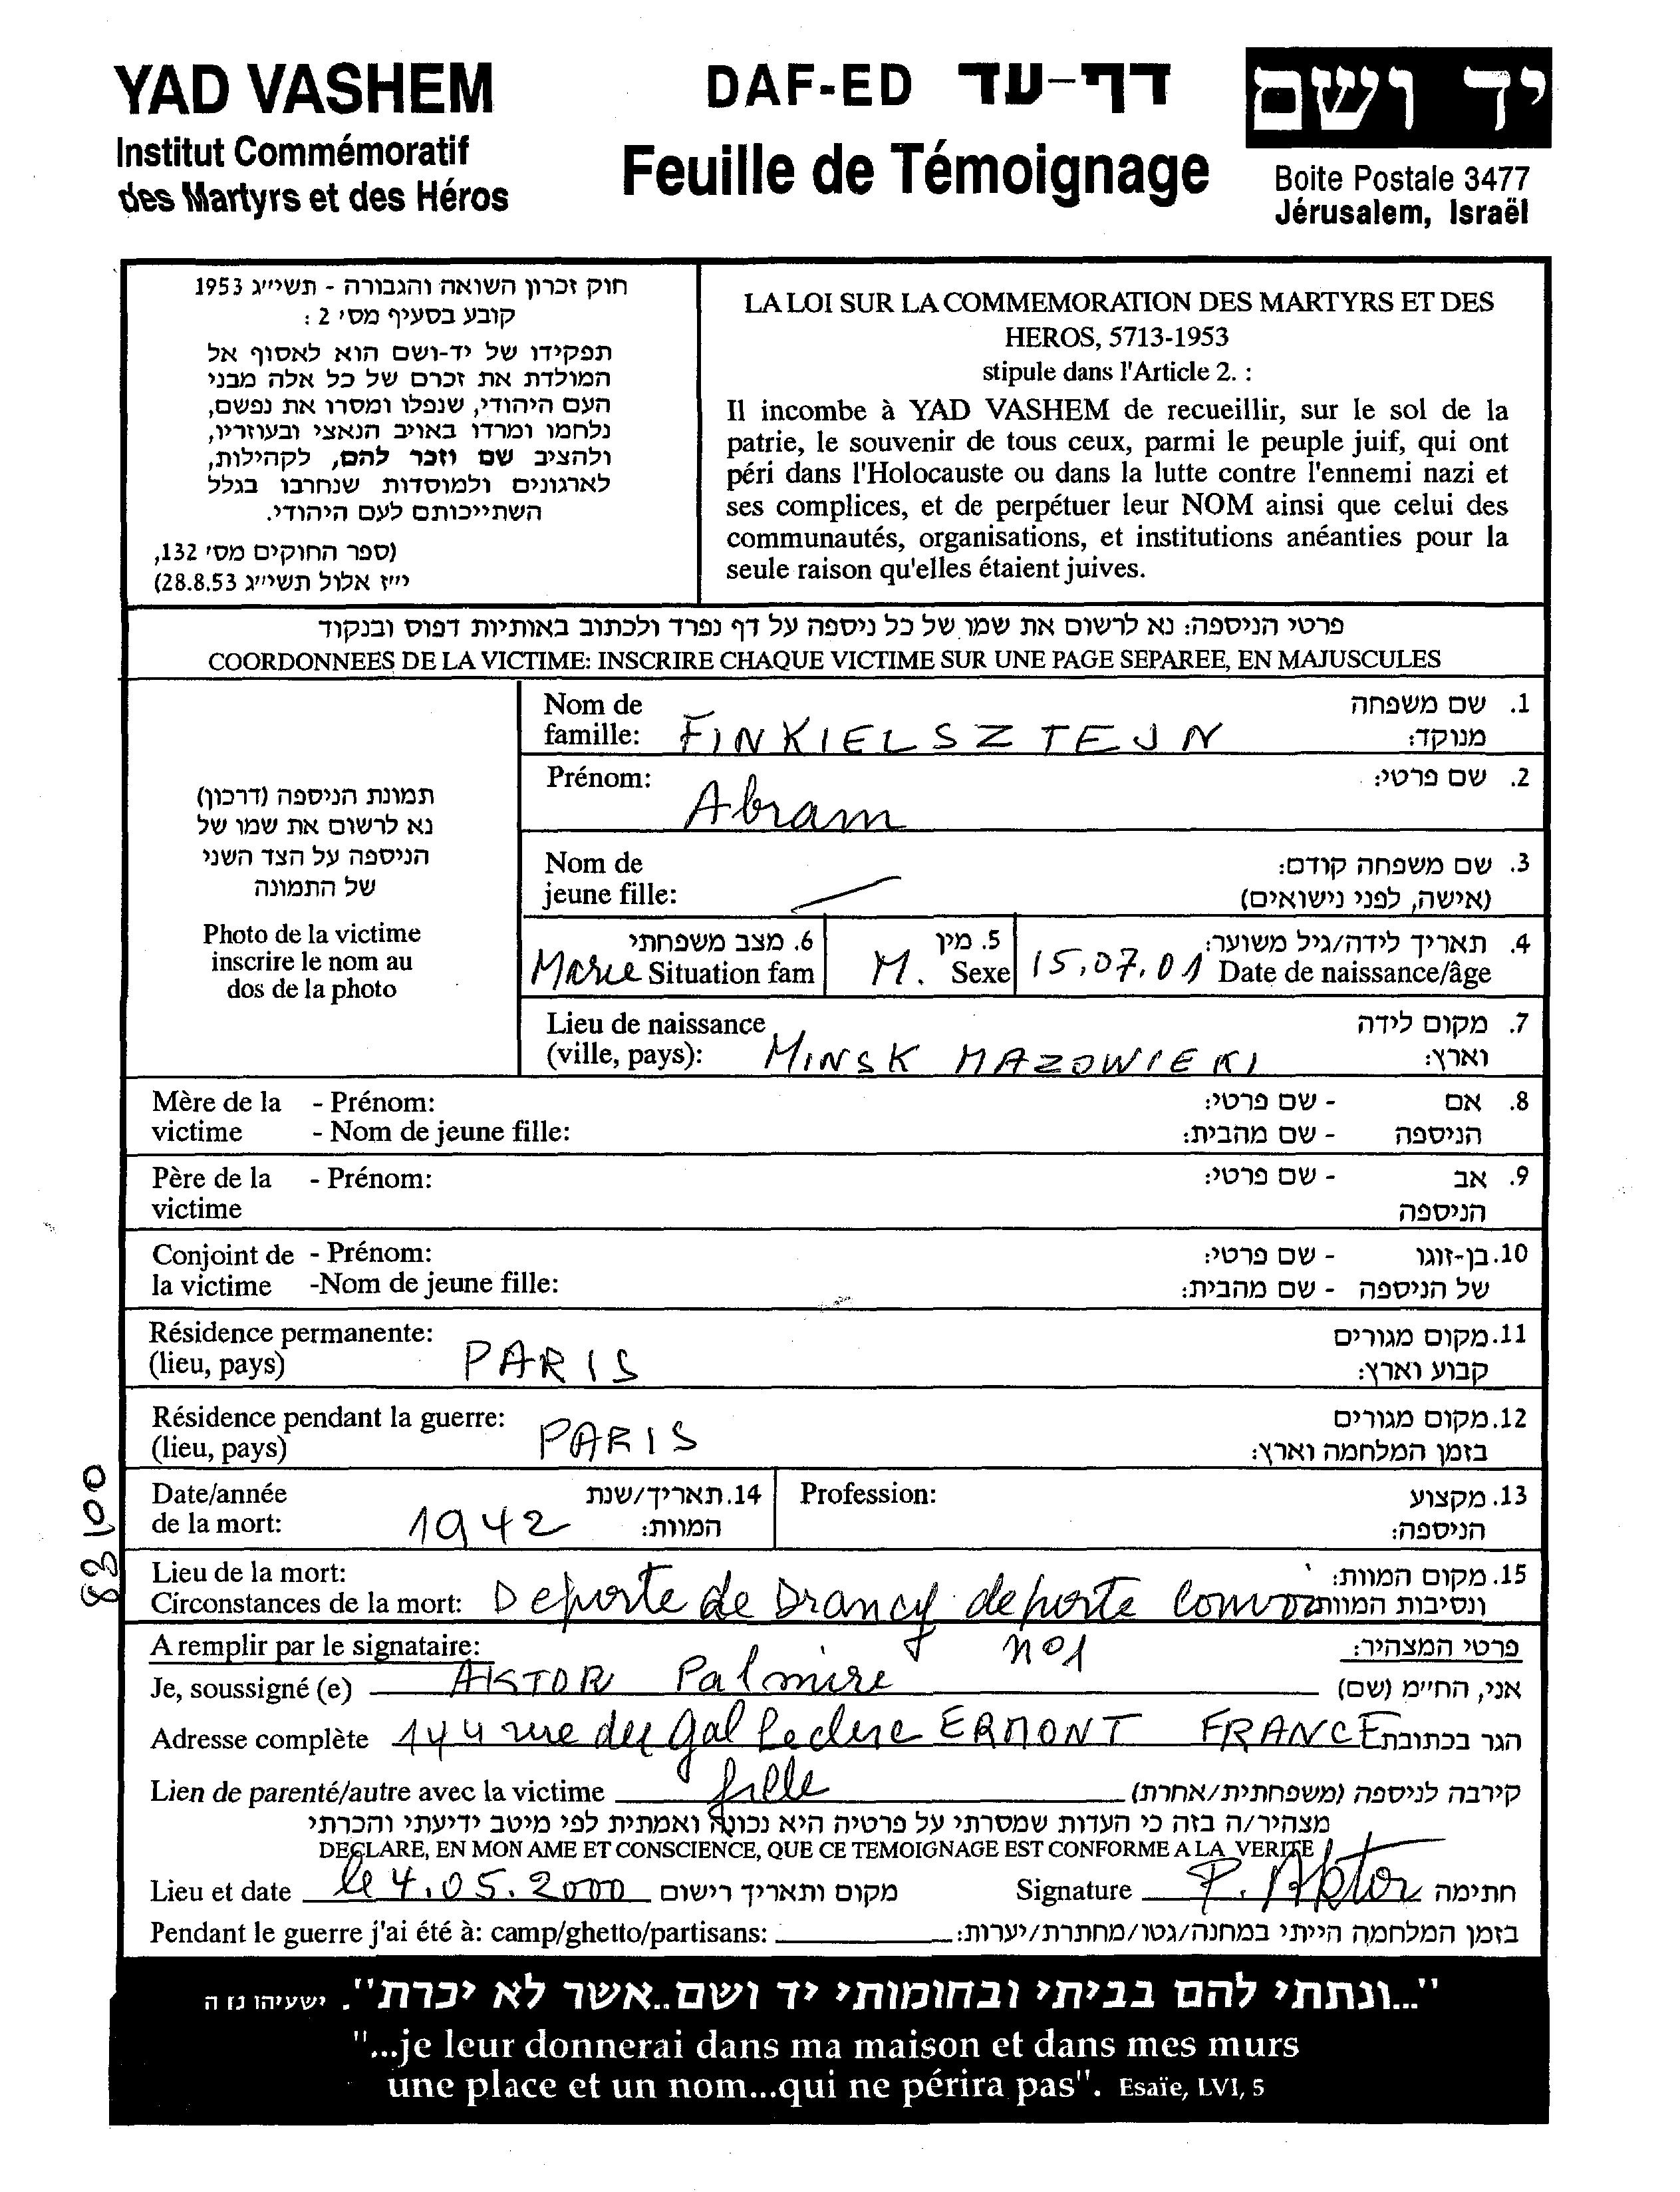 YAD VASHEM
Institut Commémoratif
des Martyrs et des Héros
DAF-ED דף-עד
Feuille de Témoignage
יד ושם
Boite Postale 3477
Jérusalem, Israël
חוק זכרון השואה והגבורה - תשי״ג 1953
קובע בסעיף מס׳ 2 :
תפקידו של יד-ושם הוא לאסוף אל
המולדת את זכרם של כל אלה מבני
העם היהודי, שנפלו ומסרו את נפשם,
נלחמו ומרדו באויב הנאצי ובעוזריו,
ולהציב שם וזכר להם, לקהילות,
לארגונים ולמוסדות שנחרבו בגלל
השתייכותם לעם היהודי.
(ספר החוקים מס׳ 132,
י״ז אלול תשי״ג 28.8.53)
LA LOI SUR LA COMMEMORATION DES MARTYRS ET DES
HEROS, 5713-1953
stipule dans l'Article 2. :
Il incombe à YAD VASHEM de recueillir, sur le sol de la
patrie, le souvenir de tous ceux, parmi le peuple juif, qui ont
péri dans l'Holocauste ou dans la lutte contre l'ennemi nazi et
ses complices, et de perpétuer leur NOM ainsi que celui des
communautés, organisations, et institutions anéanties pour la
seule raison qu'elles étaient juives.
פרטי הניספה: נא לרשום את שמו של כל ניספה על דף נפרד ולכתוב באותיות דפוס ובנקוד
COORDONNEES DE LA VICTIME: INSCRIRE CHAQUE VICTIME SUR UNE PAGE SEPAREE, EN MAJUSCULES
תמונת הניספה (דרכון)
נא לרשום את שמו של
הניספה על הצד השני
של התמונה
Photo de la victime
inscrire le nom au
dos de la photo
Nom de 1. שם משפחה
famille: FINKIELSZTEJN מנוקד:
Prénom: Abram 2. שם פרטי:
Nom de 3. שם משפחה קודם:
jeune fille: (אישה, לפני נישואים)
6. מצב משפחתי 5. מין 4. תאריך לידה/גיל משוער:
Marie Situation fam M. Sexe 15.07.01 Date de naissance/âge
Lieu de naissance 7. מקום לידה
(ville, pays): MINSK MAZOWIEKI וארץ:
Mère de la - Prénom: - שם פרטי: 8. אם
victime - Nom de jeune fille: - שם מהבית: הניספה
Père de la - Prénom: - שם פרטי: 9. אב
victime הניספה
Conjoint de - Prénom: - שם פרטי: 10. בן-זוגו
la victime -Nom de jeune fille: - שם מהבית: של הניספה
Résidence permanente: 11. מקום מגורים
(lieu, pays) PARIS קבוע וארץ:
Résidence pendant la guerre: 12. מקום מגורים
(lieu, pays) PARIS בזמן המלחמה וארץ:
Date/année 14. תאריך/שנת Profession: 13. מקצוע
de la mort: 1942 המוות: הניספה:
83100
Lieu de la mort: 15. מקום המוות:
Circonstances de la mort: Deporte de Drancy deporte convoi ונסיבות המוות
A remplir par le signataire: n°1 פרטי המצהיר:
Je, soussigné (e) AKTOR Palmire אני, החי״מ (שם)
Adresse complète 144 rue du Gal Leclerc ERMONT FRANCE הגר בכתובת
Lien de parenté/autre avec la victime fille קירבה לניספה (משפחתית/אחרת)
מצהיר/ה בזה כי העדות שמסרתי על פרטיה היא נכונה ואמתית לפי מיטב ידיעתי והכרתי
DECLARE, EN MON AME ET CONSCIENCE, QUE CE TEMOIGNAGE EST CONFORME A LA VERITE
Lieu et date le 4.05.2000 מקום ותאריך רישום Signature P. Aktor חתימה
Pendant le guerre j'ai été à: camp/ghetto/partisans: בזמן המלחמה הייתי במחנה/גטו/מחתרת/יערות:
"...ונתתי להם בביתי ובחומותי יד ושם..אשר לא יכרת". ישעיהו נו ה
"...je leur donnerai dans ma maison et dans mes murs
une place et un nom...qui ne périra pas". Esaïe, LVI, 5